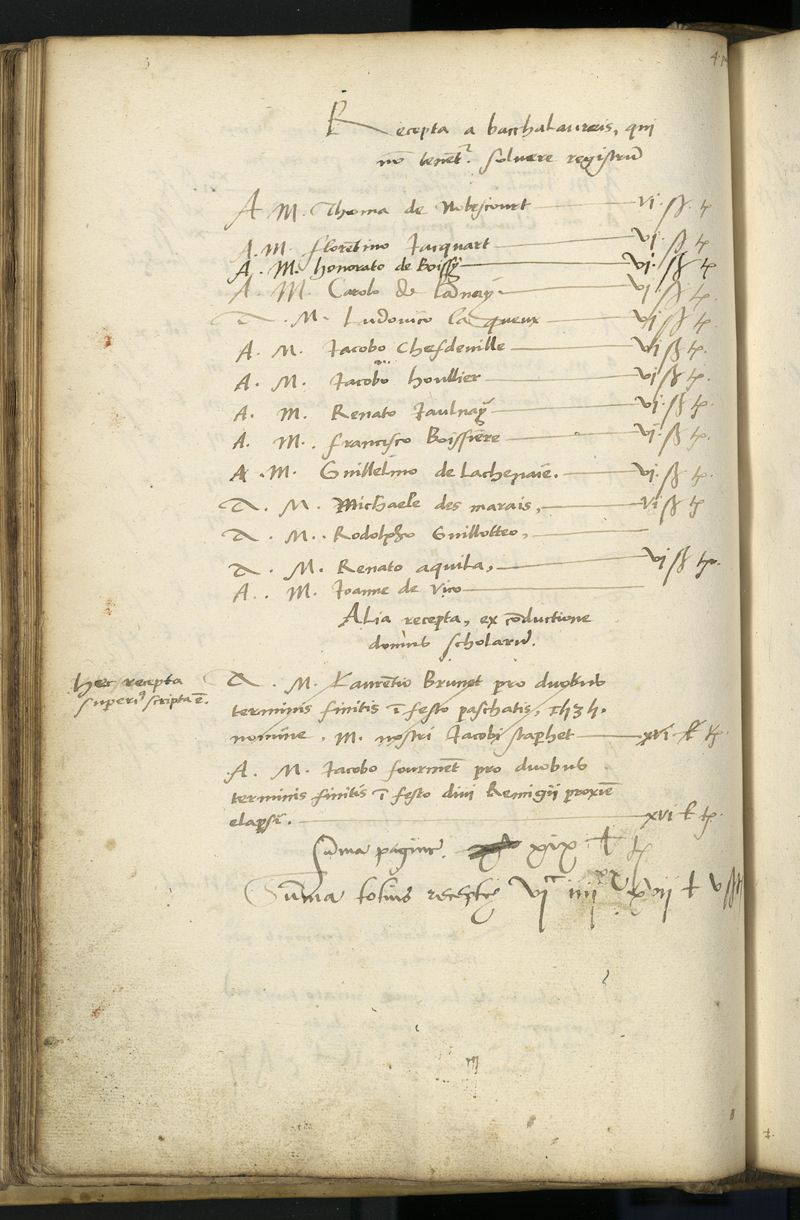 Recepta a bacchalaureis, qui
nō tenēt.r solvere registrū
A M. Thoma de Nobescourt vi. ß. tꝭ
A. M. florentino Jacquart vi. ß tꝭ
A. M. honorato de Boissy vi. ß tꝭ
A. M. Carolo de launay. vi ß tꝭ.
A. M. Ludovico la queux vi ß tꝭ.
A. M. Jacobo Chefdeville vi ß tꝭ.
A. M. Jacobo houllier vi. ß tꝭ.
A. M. Renato Jaulnay vi. ß tꝭ.
A. M. francisco Boissiere vi. ß tꝭ.
A. M. Guillelmo de Lachenaie. vi. ß tꝭ.
A. M. Michaele des marais, vi ß tꝭ
A. M. Rodolpho Guillotteo,
A. M. Renato aquila, vi ß tꝭ.
A. M. Joanne de vico
Alia recepta, ex cōductione
domus scholarū.
hec recepta
superiꝰ scripta ē.
A. M. Laurentio Brunet pro duobus
terminis finitis ī festo paschatis,
nomine. M. nostri Jacobi staphet xvi ł tꝭ.
A. M. Jacobo fourmēt pro duobus
terminis finitis ī festo divi Remigii proxīe
elapsi. xvi ł tꝭ.
Sūma pagine. xix ł tꝭ
Sūma totius recepte vi^c iiii^xx xvii ł v ß tꝭ